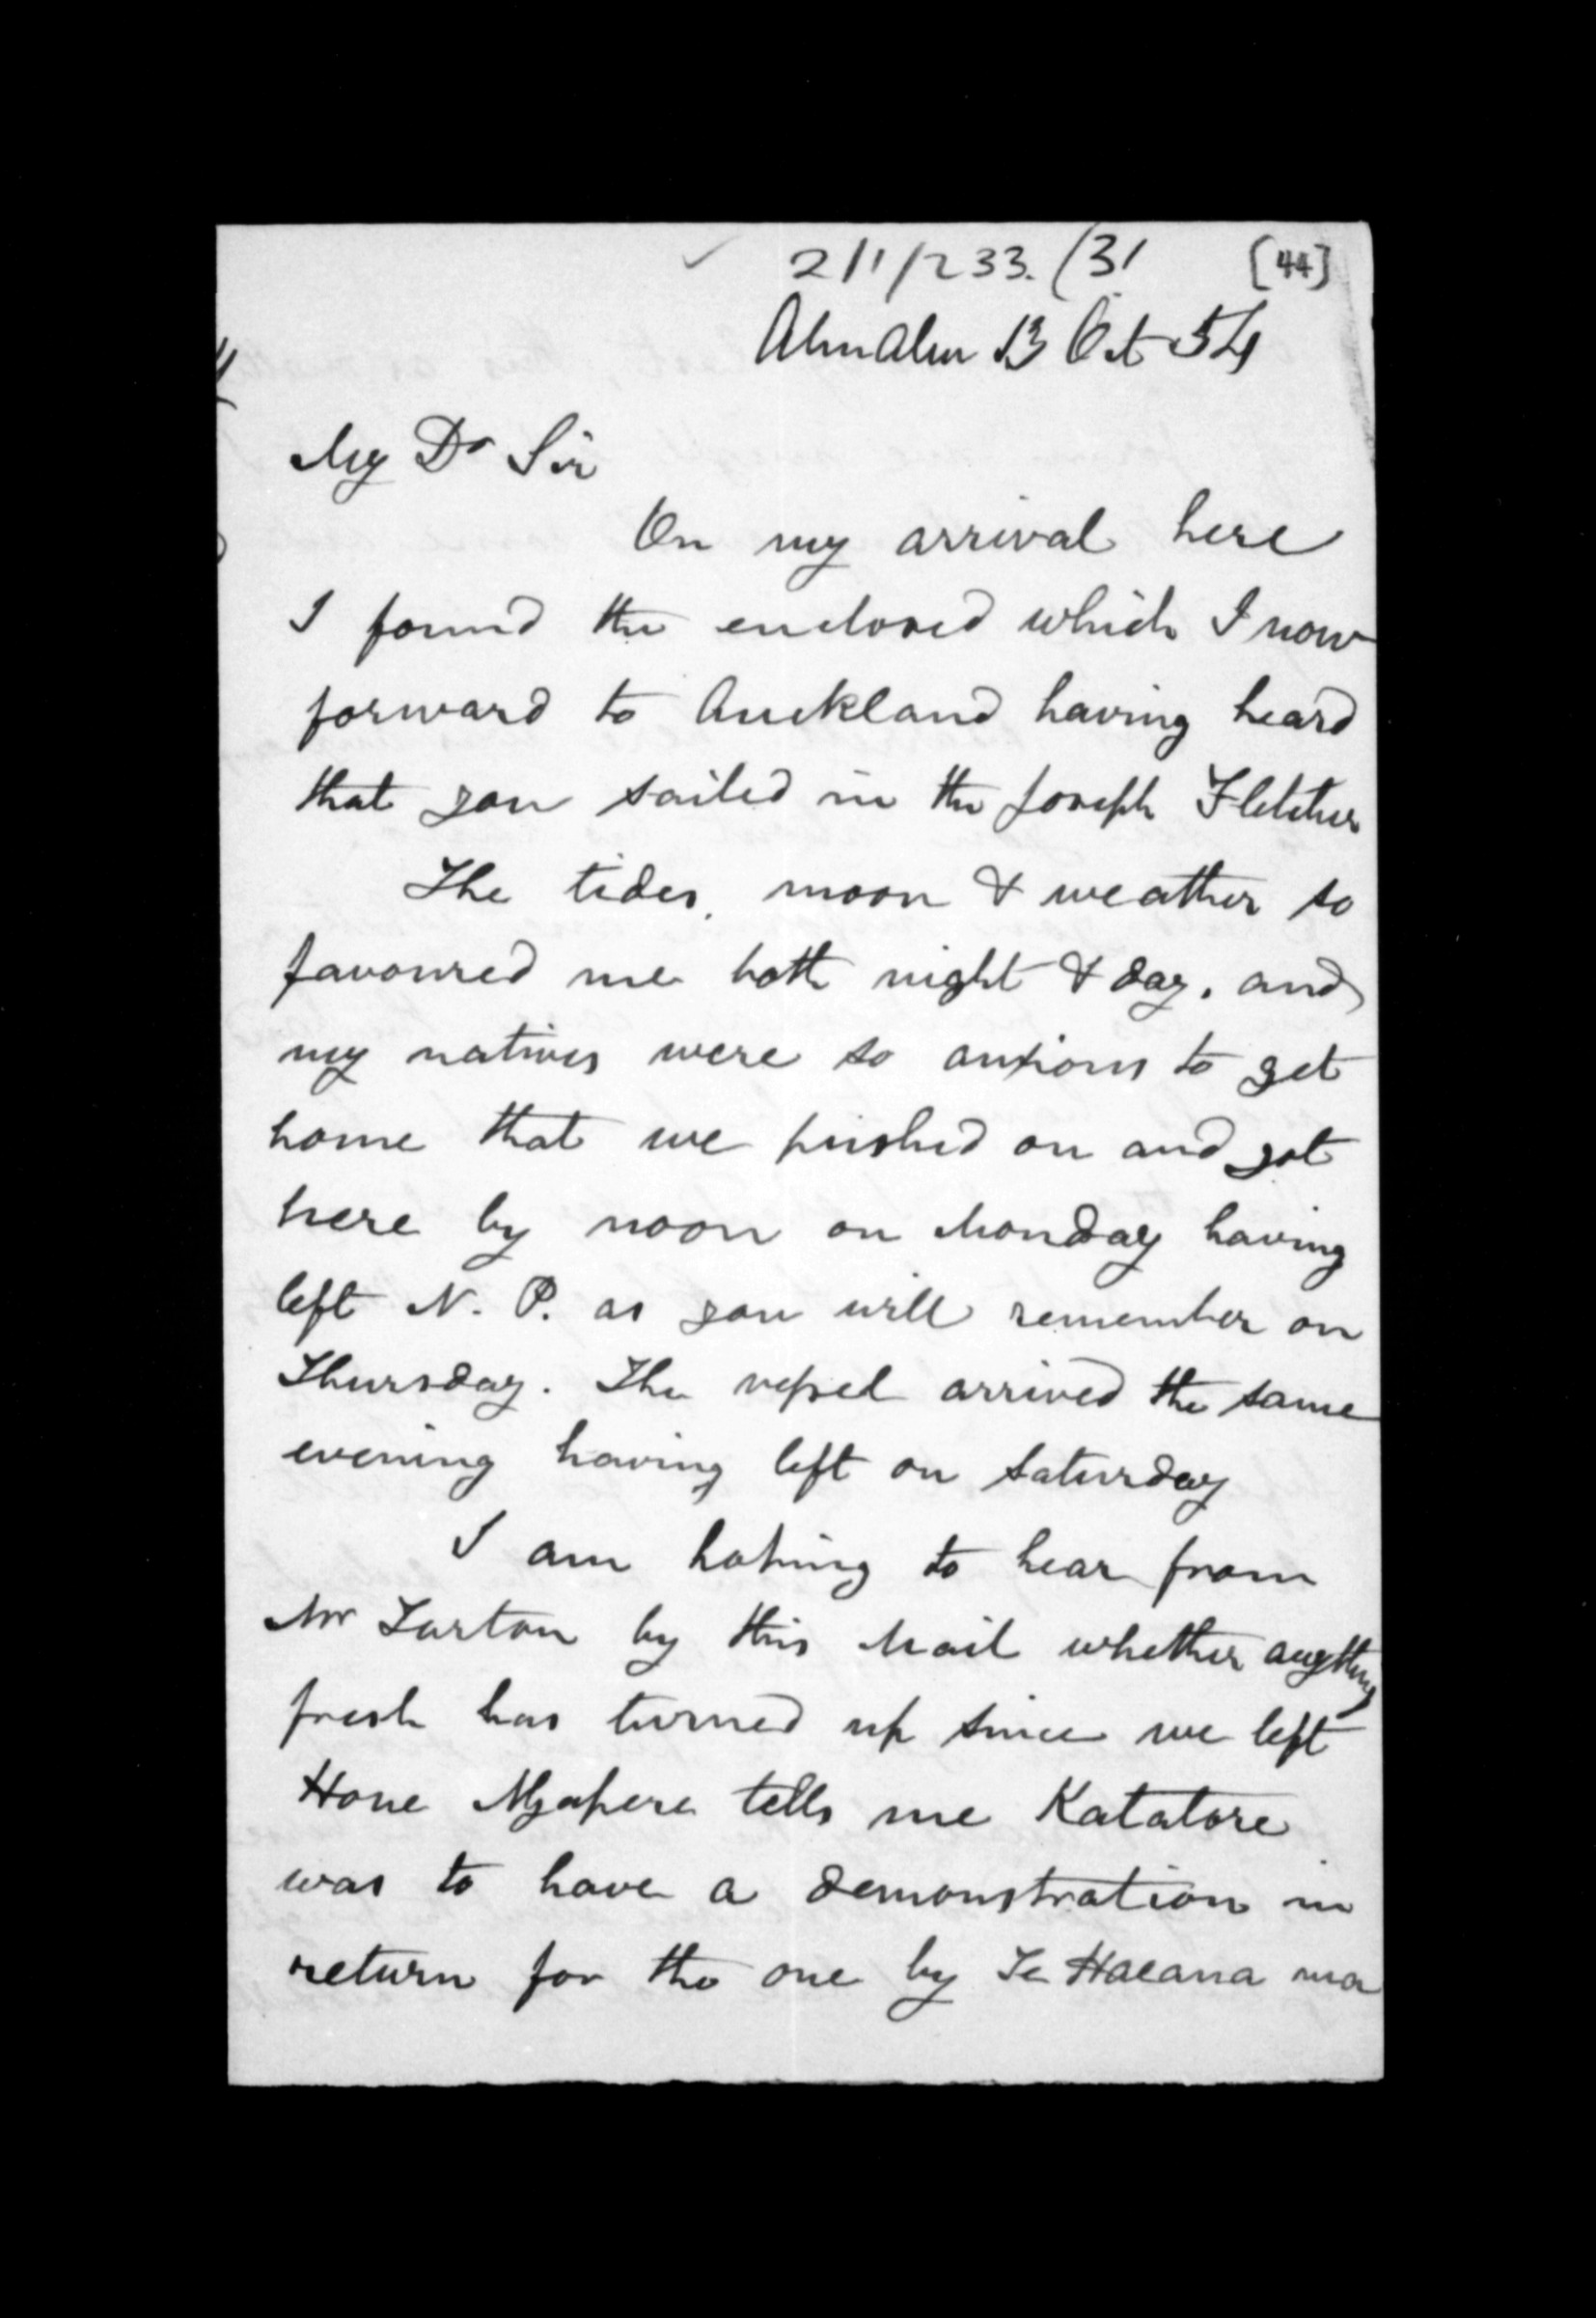 2/1/233. (31 [44]
AhuAhu 13 Oct 54
My Dr Sir
On my arrival here
I found the enclosed which I now
forward to Auckland having heard
that you sailed in the Joseph Fletcher
The tides, moon & weather so
favoured me both night & day, and
my natives were so anxious to get
home that we pushed on and got
here by noon on Monday having
left N. P. as you will remember on
Thursday. The vessel arrived the same
evening having left on Saturday
I am hoping to hear from
Mr Turton by this Mail whether anything
fresh has turned up since we left
Hone Ngapera tells me Katatore
was to have a demonstration in
return for the one by Te Haeana ma